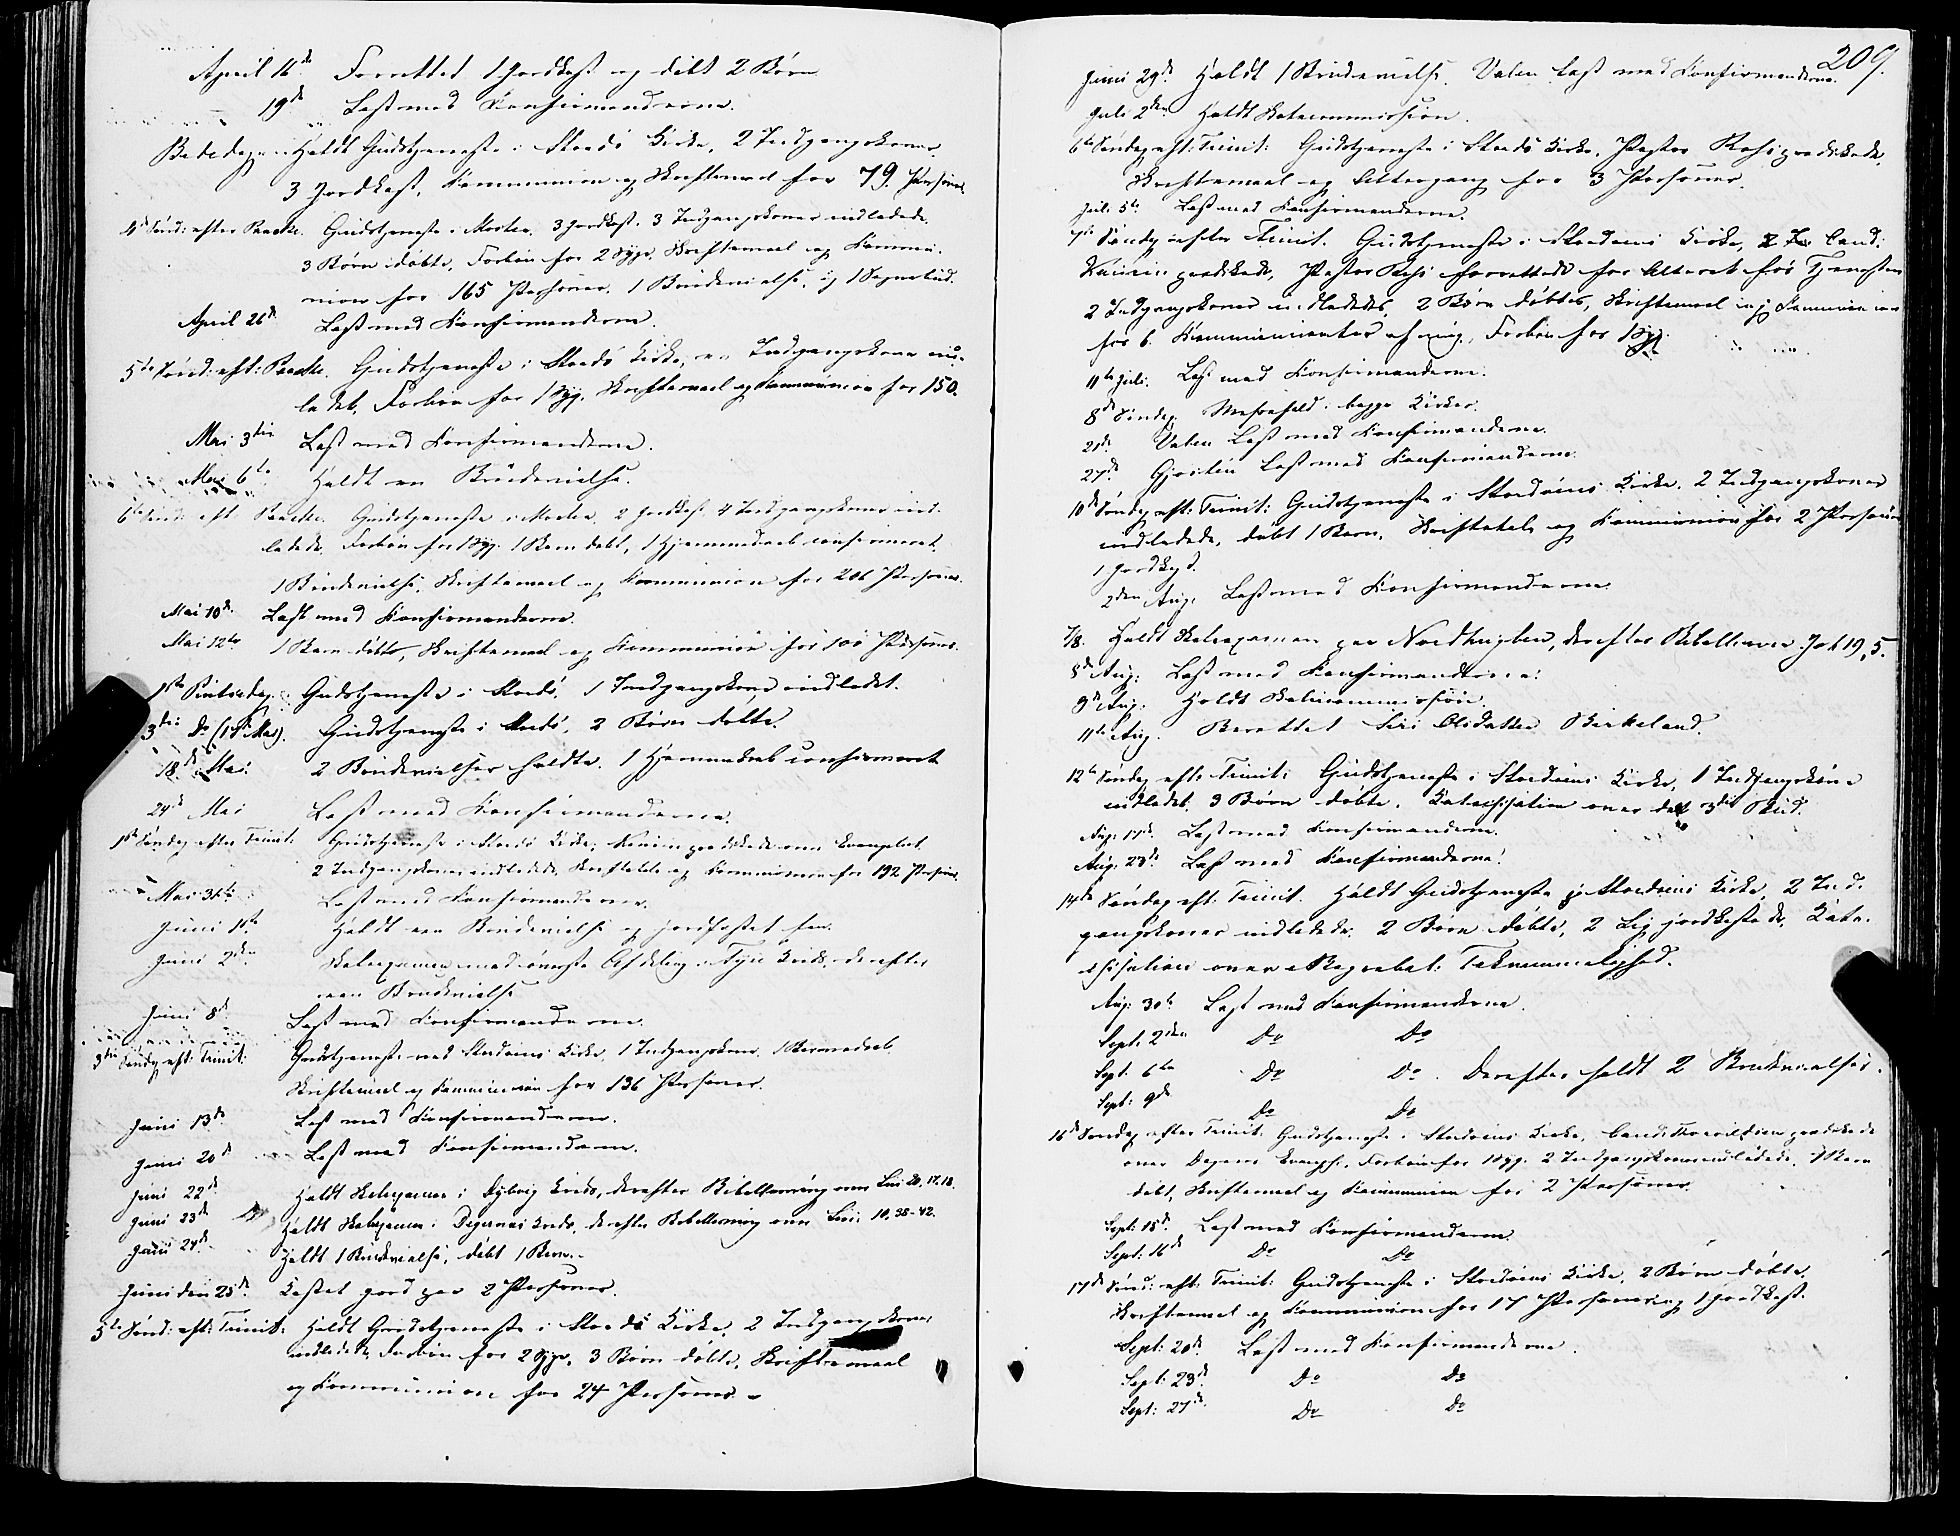 April 16de Forrettet 1 Jordkast og døbt 2 Børn
19de Læst med Konfirmanderne.
Bededag Holdt Gudstjeneste i Stords Kirke, 2 Indgangskoner
3 Jordkast, Kommunion og Skriftemaal for 79. Personer
4de Sønd: efter Paaske. Gudstjeneste i Moster. 3 Jordkast. 3 Indgangskoner indledede.
3 Børn døbte, Forbøn for 2 Syge, Skriftemaal og Kommu-
nion for 165 Personer. 1 Brudevielse, og 1 Sognebud.
April 26de Læst med Konfirmanderne.
5te Sønd: eft: Paaske. Gudstjeneste i Stords Kirke, en Indgangskone ind-
ledet, Forbøn for 1 Syg, Skriftemaal og Kommunion for 150.
Mai 3die Læst med Konfirmanderne.
Mai 6te Holdt en Brudevielse.
6te Sønd: eft Paaske. Gudstjeneste i Moster. 2 Jordkast 4 Indgangskoner ind-
ledede, Forbøn for 1 Syg. 1 Barn døbt, 1 Hjemmedaab confirmeret.
1 Brudevielse, Skriftemaal og Kommunion for 206 Personer.
Mai 10de Læst med Konfirmanderne.
Mai 12te 1 Barn døbt, Skriftemaal og Kommunion for 100 Personer.
1ste Pintsedag. Gudstjeneste i Stord. 1 Indgangskone indledet.
3die Do Gudstjeneste i Stord, 2 Børn døbte.
18de Mai. 2 Brudevielser holdte. 1 Hjemmedaab confirmeret
24de Mai Læst med Konfirmanderne.
1ste Søndag efter Trinit: Gudstjeneste i Stords Kirke, prædikede over Evangeliet.
2 Indgangskoner indledede, Skriftetale og Kommunion for 192 Personer.
Mai 31te Læst med Konfirmanderne.
Juni 1ste Holdt een Brudevielse og jordfæstet een.
Juni 2den Skoleexamen med øverste Afdeling i Kreds, derefter
een Brudevielse
Juni 8de Læst med Konfirmanderne.
3die Søndag eft: Trinit: Gudstjeneste ved Stordøens Kirke, 1 Indgangskone. 1 Hjemmedaab.
Skriftemaal og Kommunion for 136 Personer.
Juni 13de Læst med Konfirmanderne.
Juni 20de Læst med Konfirmanderne.
Juni 22de Holdt Skoleexamen i Kreds, derefter Bibellæsning over Luc
Juni 23de Holdt Skoleexamen i Kreds, derefter Bibellæsning over Luc: 10, 38-42.
Juni 24de Holdt 1 Brudevielse, døbt 1 Barn.
Juni den 25de Kastet Jord paa 2 Personer.
5te Sønd: eft: Trinit: Holdt Gudstjeneste i Stords Kirke, 2 Indgangskoner
indledede, Forbøn for 2 Syge, 3 Børn døbte, Skriftemaal
og Kommunion for 24 Personer.
209.
Juni 29de Holdt 1 Brudevielse. Valen læst med Konfirmanderne.
Juli 2den Holdt Skolecommission.
6te Søndag eft: Trinit: Gudstjeneste i Stords Kirke. Pastor prædikede.
Skriftemaal og Altergang for 3 Personer.
Juli 5te Læst med Konfirmanderne.
7de Søndag efter Trinit. Gudstjeneste i Stordøens Kirke, Cand:
prædikede, Pastor forrettede for Alteret før Tjenesten
2 Indgangskoner indledede, 2 Børn døbtes, Skriftemaal og Kommunion
for 6 Kommunicanter af mig, Forbøn for 1 Syg.
11te Juli. Læst med Konfirmanderne.
8de Søndag Messefald i begge Kirker.
21de Valen Læst med Konfirmanderne.
27de Læst med Konfirmanderne.
10de Søndag eft: Trinit: Gudstjeneste i Stordøens Kirke, 2 Indgangskoner
indledede, døbt 1 Barn, Skriftetale og Kommunion for 2 Personer
1 Jordkast.
2den Aug. Læst med Konfirmanderne
7/8. Holdt Skoleexamen paa Nordhuglen, derefter Bibellæsn. Joh 19, 5.
8de Aug: Læst med Konfirmanderne.
9de Aug: Holdt Skolecommission.
11te Aug. Berettet Siri Olsdatter Birkeland.
12te Søndag efter Trinit: Gudstjeneste i Stordøens Kirke, 1 Indgangskone
indledet. 3 Børn døbte. Katechisation over det 3die Bud.
Aug. 17de Læst med Konfirmanderne.
Aug: 23de Læst med Konfirmanderne.
14de Søndag eft: Trinit. Holdt Gudstjeneste i Stordøens Kirke, 2 Ind-
gangskoner indledede. 2 Børn døbte, 2 Lig jordkastede, Kate-
chisation over Begrebet: Taknemmelighed.
Aug: 30te Læst med Konfirmanderne.
Sept: 2den Do Do
Sept: 6te Do Do. Derefter holdt 2 Brudevielser.
Sept: 9de Do Do
16de Søndag efter Trinit: Gudstjeneste i Stordøens Kirke, Cand: prædikede
over Dagens Evangel., Forbøn for 1 Syg. 2 Indgangskoner indledede. 1 Barn
døbt, Skriftemaal og Kommunion for 2 Personer.
Sept: 15de Læst med Konfirmanderne
Sept: 16de Do Do
17de Sønd: eft: Trinit: Gudstjeneste i Stordøens Kirke, 2 Børn døbte.
Skriftemaal og Kommunion for 17 Personer og 1 Jordkast.
Sept: 20de Læst med Konfirmanderne.
Sept: 23de Do Do
Sept: 27de Do Do